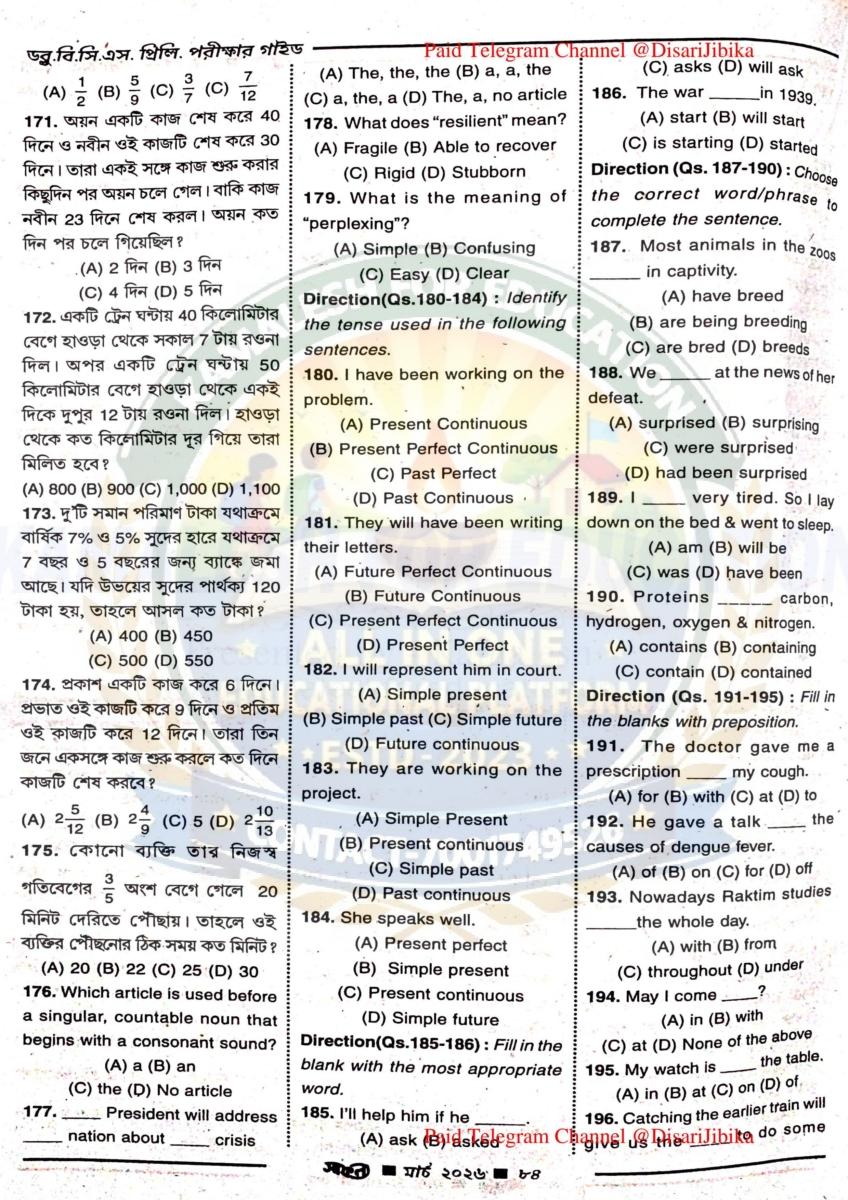 ডব্লু.বি.সি.এস. প্রিলি. পরীক্ষার গাইড
Paid Telegram Channel @DisariJibika
(A) 1/2 (B) 5/9 (C) 3/7 (C) 7/12
171. অয়ন একটি কাজ শেষ করে 40
দিনে ও নবীন ওই কাজটি শেষ করে 30
দিনে। তারা একই সঙ্গে কাজ শুরু করার
কিছুদিন পর অয়ন চলে গেল। বাকি কাজ
নবীন 23 দিনে শেষ করল। অয়ন কত
দিন পর চলে গিয়েছিল?
(A) 2 দিন (B) 3 দিন
(C) 4 দিন (D) 5 দিন
172. একটি ট্রেন ঘন্টায় 40 কিলোমিটার
বেগে হাওড়া থেকে সকাল 7 টায় রওনা
দিল। অপর একটি ট্রেন ঘন্টায় 50
কিলোমিটার বেগে হাওড়া থেকে একই
দিকে দুপুর 12 টায় রওনা দিল। হাওড়া
থেকে কত কিলোমিটার দূর গিয়ে তারা
মিলিত হবে?
(A) 800 (B) 900 (C) 1,000 (D) 1,100
173. দু'টি সমান পরিমাণ টাকা যথাক্রমে
বার্ষিক 7% ও 5% সুদের হারে যথাক্রমে
7 বছর ও 5 বছরের জন্য ব্যাঙ্কে জমা
আছে। যদি উভয়ের সুদের পার্থক্য 120
টাকা হয়, তাহলে আসল কত টাকা?
(A) 400 (B) 450
(C) 500 (D) 550
174. প্রকাশ একটি কাজ করে 6 দিনে।
প্রভাত ওই কাজটি করে 9 দিনে ও প্রতিম
ওই কাজটি করে 12 দিনে। তারা তিন
জনে একসঙ্গে কাজ শুরু করলে কত দিনে
কাজটি শেষ করবে?
(A) 2 5/12 (B) 2 4/9 (C) 5 (D) 2 10/13
175. কোনো ব্যক্তি তার নিজস্ব
গতিবেগের 3/5 অংশ বেগে গেলে 20
মিনিট দেরিতে পৌঁছায়। তাহলে ওই
ব্যক্তির পৌঁছনোর ঠিক সময় কত মিনিট?
(A) 20 (B) 22 (C) 25 (D) 30
176. Which article is used before
a singular, countable noun that
begins with a consonant sound?
(A) a (B) an
(C) the (D) No article
177. _____ President will address
_____ nation about _____ crisis
(A) The, the, the (B) a, a, the
(C) a, the, a (D) The, a, no article
178. What does “resilient” mean?
(A) Fragile (B) Able to recover
(C) Rigid (D) Stubborn
179. What is the meaning of
“perplexing”?
(A) Simple (B) Confusing
(C) Easy (D) Clear
Direction(Qs.180-184) : Identify
the tense used in the following
sentences.
180. I have been working on the
problem.
(A) Present Continuous
(B) Present Perfect Continuous
(C) Past Perfect
(D) Past Continuous
181. They will have been writing
their letters.
(A) Future Perfect Continuous
(B) Future Continuous
(C) Present Perfect Continuous
(D) Present Perfect
182. I will represent him in court.
(A) Simple present
(B) Simple past (C) Simple future
(D) Future continuous
183. They are working on the
project.
(A) Simple Present
(B) Present continuous
(C) Simple past
(D) Past continuous
184. She speaks well.
(A) Present perfect
(B) Simple present
(C) Present continuous
(D) Simple future
Direction(Qs.185-186) : Fill in the
blank with the most appropriate
word.
185. I'll help him if he ______.
(A) ask (B) asked
(C) asks (D) will ask
186. The war ______in 1939.
(A) start (B) will start
(C) is starting (D) started
Direction (Qs. 187-190) : Choose
the correct word/phrase to
complete the sentence.
187. Most animals in the zoos
______ in captivity.
(A) have breed
(B) are being breeding
(C) are bred (D) breeds
188. We ______ at the news of her
defeat.
(A) surprised (B) surprising
(C) were surprised
(D) had been surprised
189. I _____ very tired. So I lay
down on the bed & went to sleep.
(A) am (B) will be
(C) was (D) have been
190. Proteins _____ carbon,
hydrogen, oxygen & nitrogen.
(A) contains (B) containing
(C) contain (D) contained
Direction (Qs. 191-195) : Fill in
the blanks with preposition.
191. The doctor gave me a
prescription _____ my cough.
(A) for (B) with (C) at (D) to
192. He gave a talk _____ the
causes of dengue fever.
(A) of (B) on (C) for (D) off
193. Nowadays Raktim studies
______the whole day.
(A) with (B) from
(C) throughout (D) under
194. May I come ____?
(A) in (B) with
(C) at (D) None of the above
195. My watch is ____ the table.
(A) in (B) at (C) on (D) of
196. Catching the earlier train will
give us the _____ to do some
Paid Telegram Channel @DisariJibika
মার্চ ২০২৬ ৮৪
ALL IN ONE
EDUCATIONAL PLATFORM
ESTD - 2023